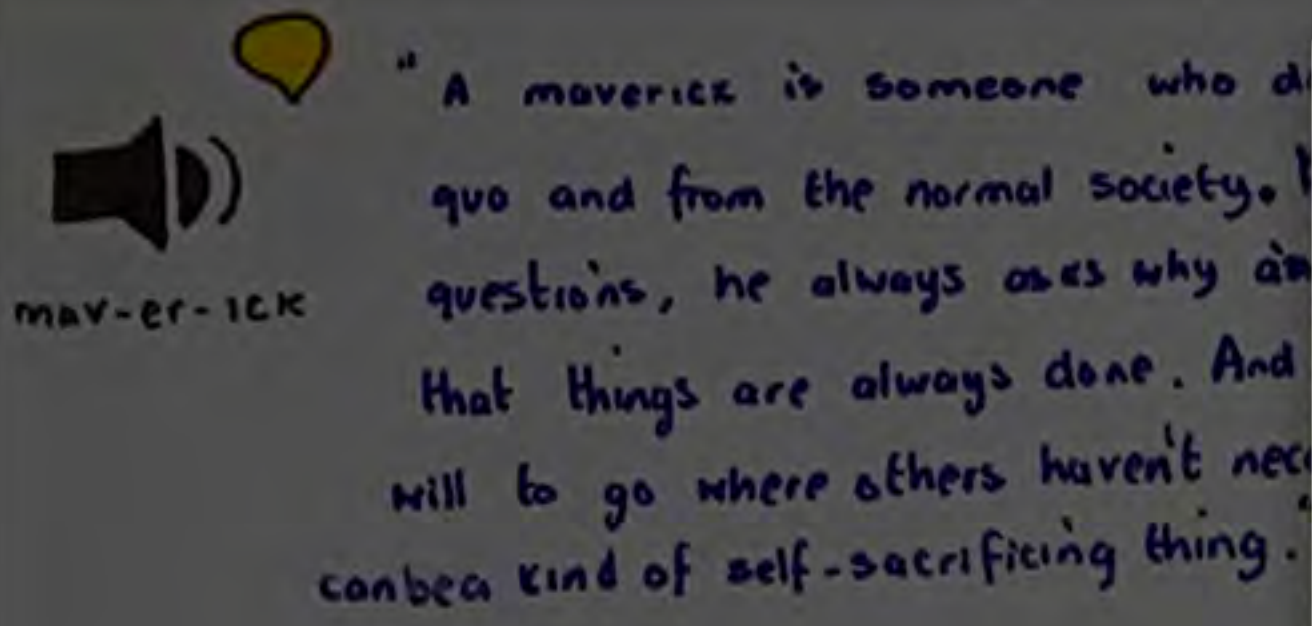 "A maverick is someone who
quo and from the normal society.
mav-er-ick
questions, he always asks why
that things are always done. And
will to go where others haven't
can be a kind of self-sacrificing thing."